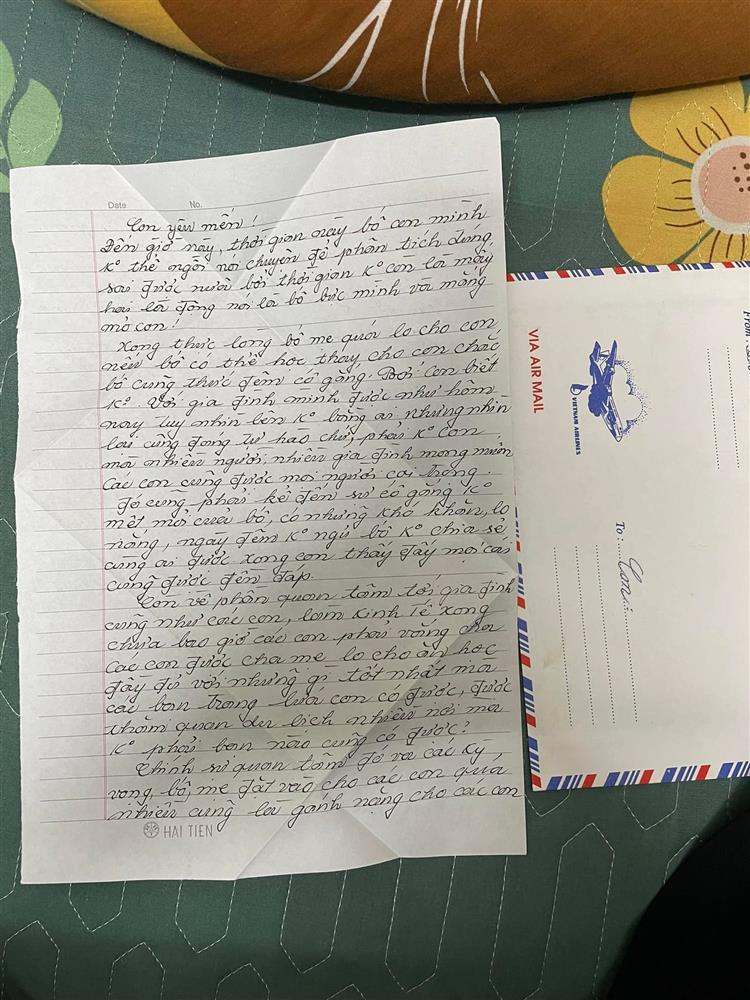 Date No.
Con yêu mến!
Đến giờ này, thời gian này bố con mình
K° thể ngồi nói chuyện để phân tích đúng
sai được nữa bởi thời gian K° còn là mấy
hai là động nói là bố bực mình và mắng
mỏ con!
Xong thực lòng bố mẹ quá lo cho con
nếu bố có thể học thay cho con chắc
bố cũng thức đêm cố gắng. Bởi con biết
K°. Với gia đình mình được như hôm
nay tuy nhìn lên K° bằng ai nhưng nhìn
lại cũng đáng tự hào chứ, phải K° con
mà nhiều người, nhiều gia đình mong muốn
các con cũng được mọi người coi trọng.
Đó cũng phải kể đến sự cố gắng K°
mệt mỏi của bố, có những khó khăn, lo
nặng, ngày đêm K° ngủ bố K° chia sẻ
cùng ai được xong con thấy đấy mọi cái
cũng được đền đáp.
Còn về phần quan tâm tới gia đình
cũng như các con, làm Kinh Tế xong
chưa bao giờ các con phải vắng cha
các con được cha mẹ lo cho ăn học
đầy đủ với những gì tốt nhất mà
các bạn trong lứa con có được, được
thăm quan du lịch nhiều nơi mà
K° phải bạn nào cũng có được?
Chính sự quan tâm đó và các kỳ
vọng, bố, mẹ đặt vào cho các con quá
nhiều cũng là gánh nặng cho các con
HAI TIEN
VIA AIR MAIL
VIETNAM AIRLINES
From:
To: Con: